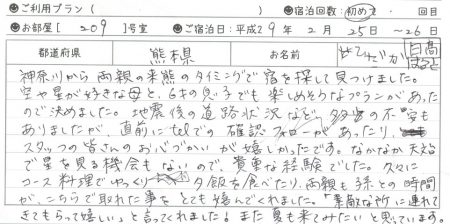 ●ご利用プラン（　　　）●宿泊回数：初めて・　回目
●お部屋［209］号室　●ご宿泊日：平成29年2月25日〜26日
都道府県　熊本県　お名前　ひだか　日高
神奈川から両親の来熊のタイミングで宿を探して見つけました。
空や星が好きな母と、6才の息子でも楽しめそうなプランがあった
ので決めました。地震後の道路状況など、多少の不安も
ありましたが、直前にtelでの確認フォローがあったり、
スタッフの皆さんのお心づかいが嬉しかったです。なかなか天文台
で星を見る機会もないので、貴重な経験でした。久々に
コース料理でゆっくり夕飯を食べたり、両親も孫との時間
が、こちらで取れた事をとても喜んでくれました。「素敵な所に連れて
きてもらって嬉しい」と言ってくれました！また夏も来てみたいと思っています。